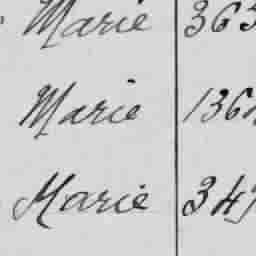 Marie 363
Marie 136
Marie 347